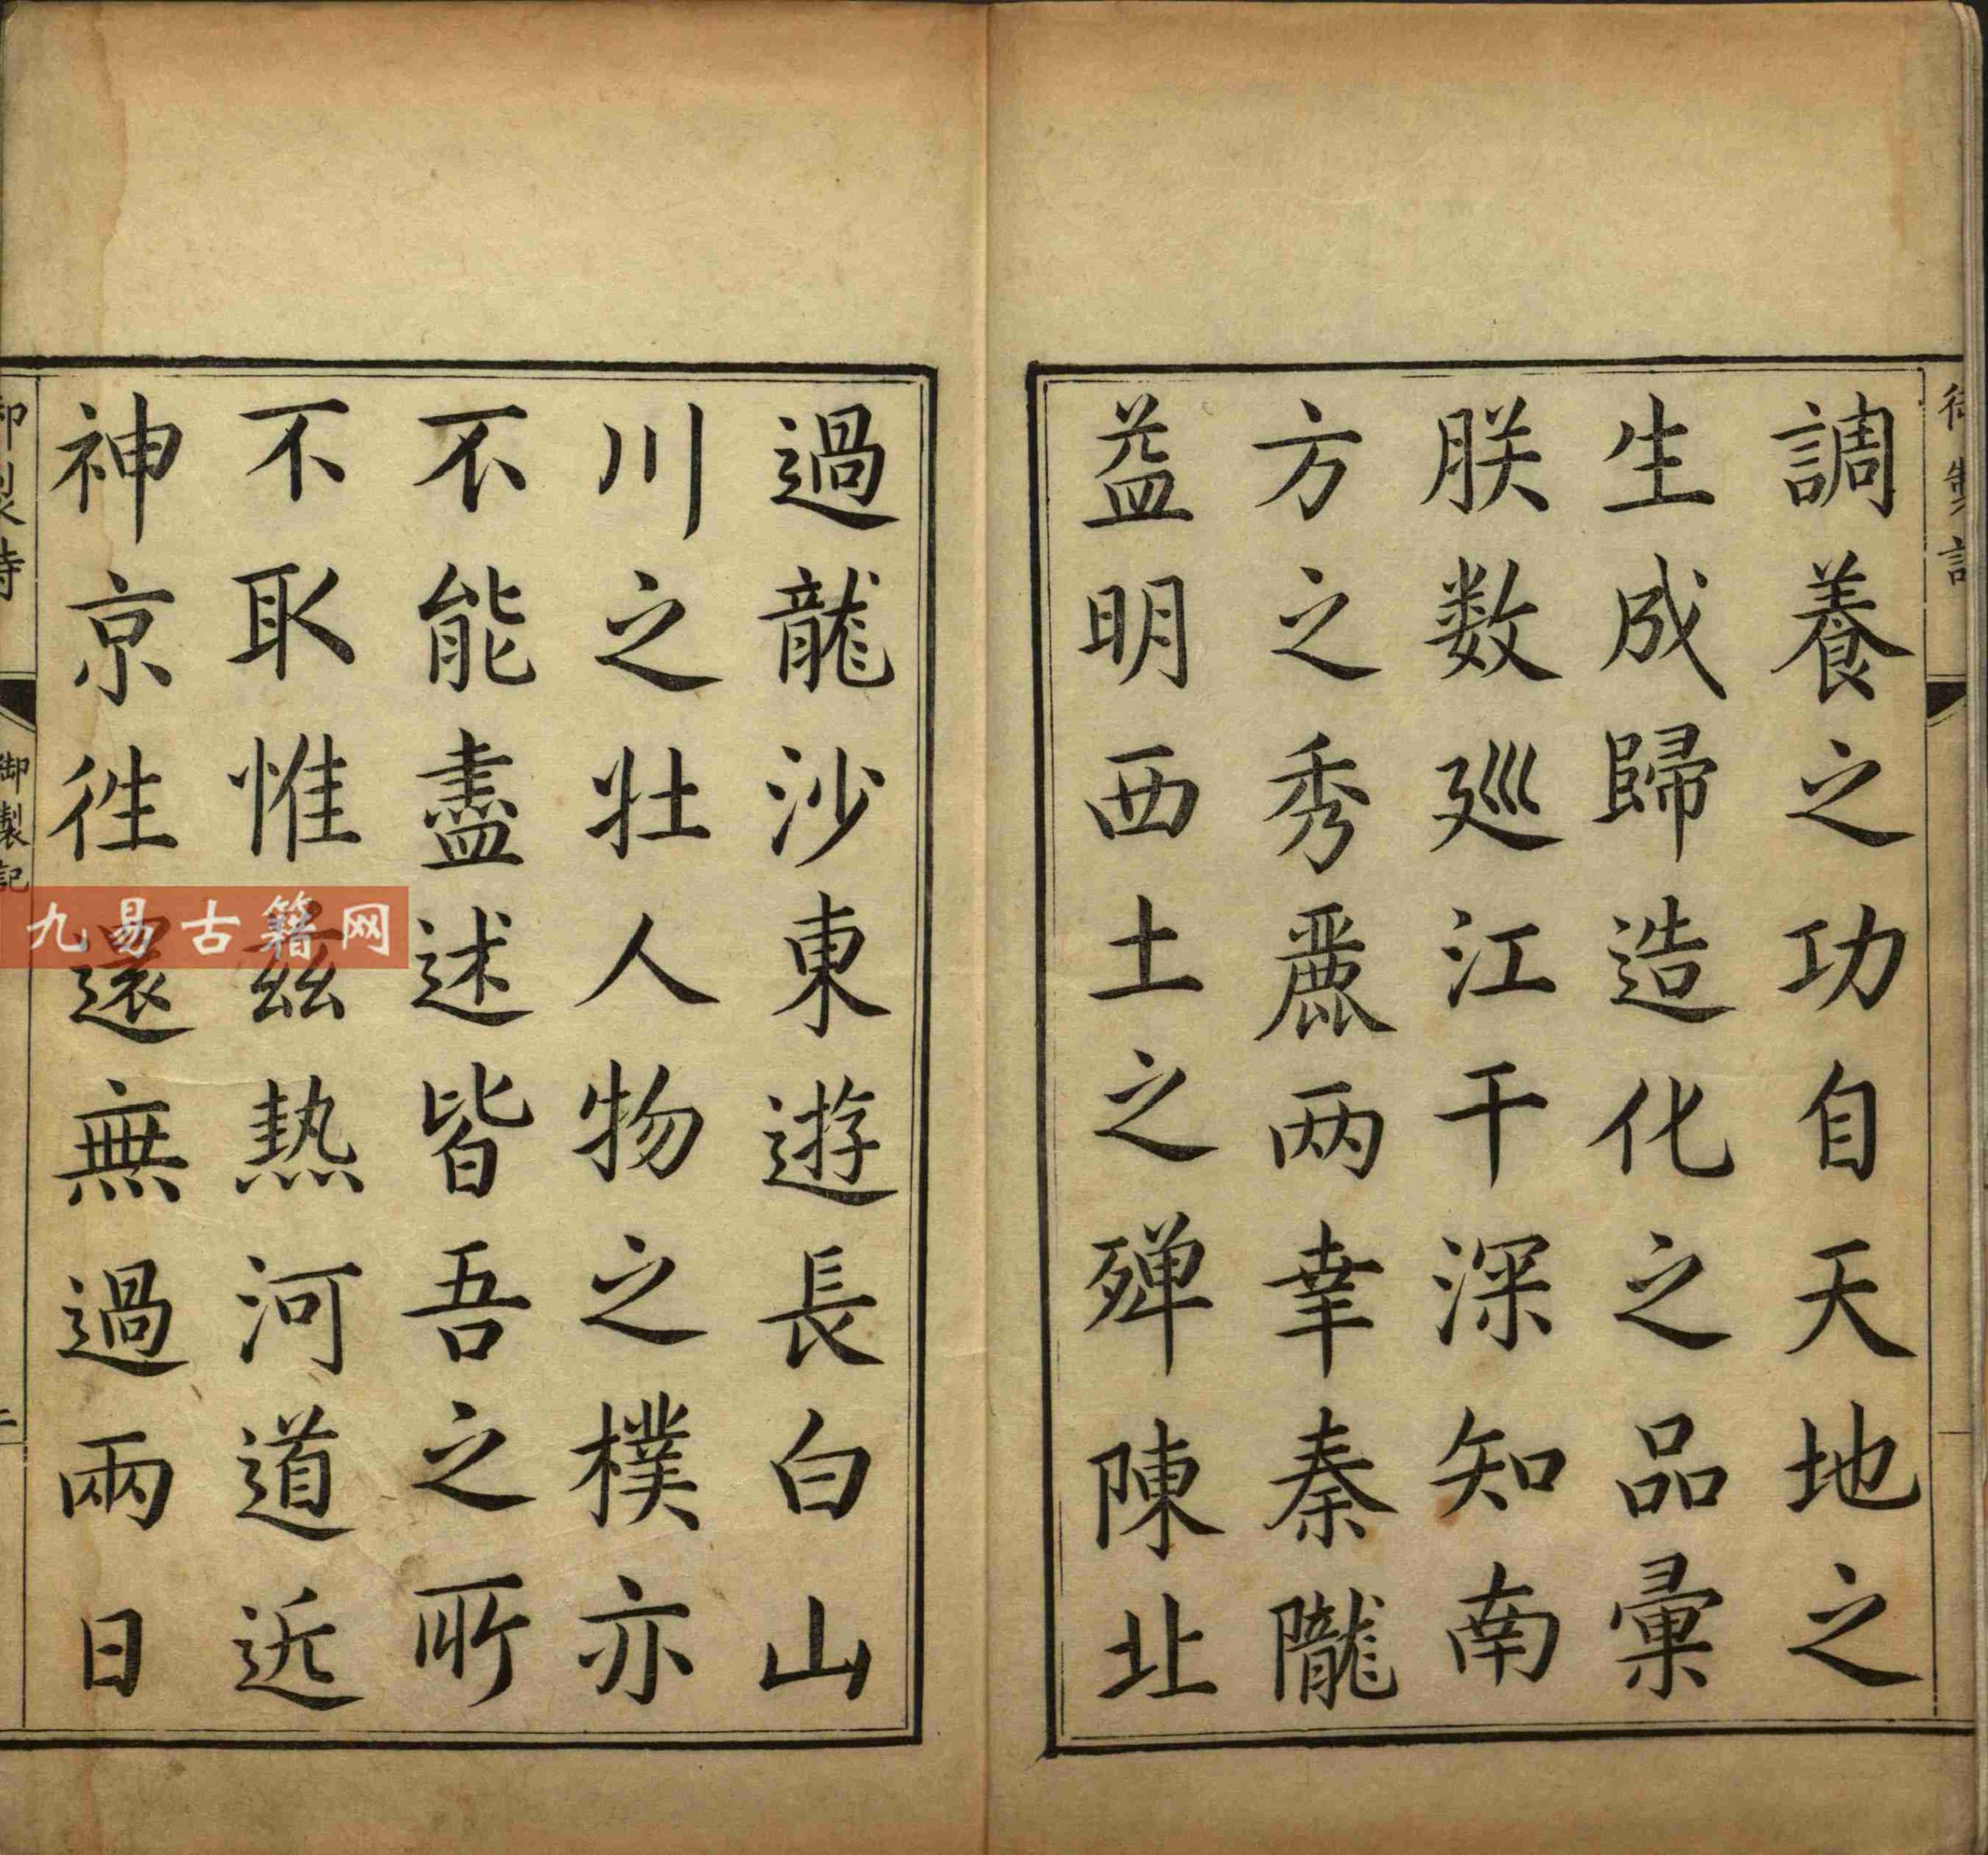 調養之功自天地之
生成歸造化之品彙
朕数廵江干深知南
方之秀麗两幸秦隴
益明西土之殫陳北
過龍沙東遊長白山
川之壯人物之樸亦
不能盡述皆吾之所
不取惟兹热河道近
神京徃還無過兩日
御製記
九易古籍网